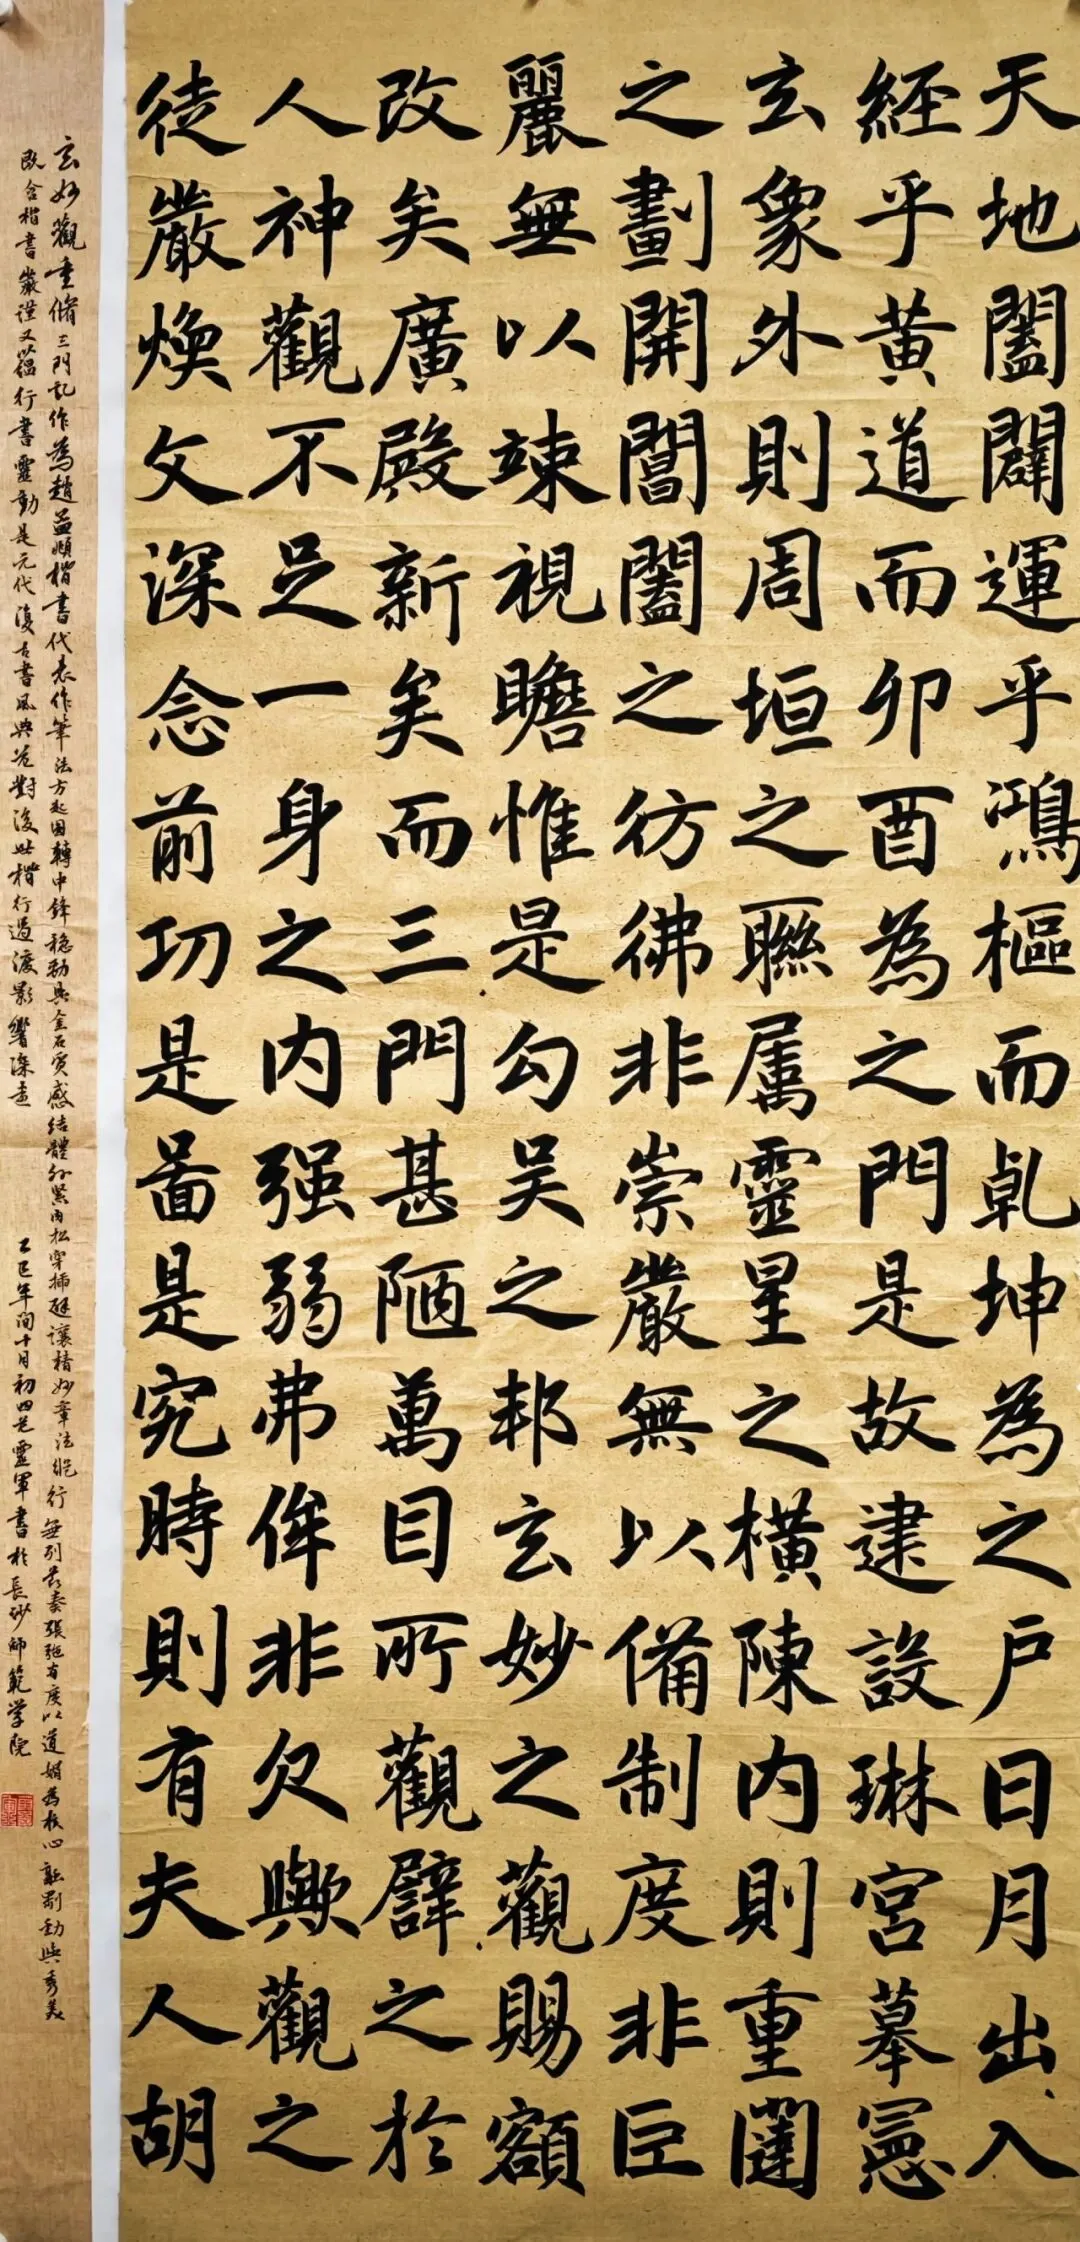 天地闔闢運乎鴻樞而乹坤為之户日月出入
經乎黄道而卯酉為之門是故建設琳宫摹憲
玄象外則周垣之聯属靈星之橫陳内則重闥
之劃開閶闔之彷彿非崇嚴無以備制度非巨
麗無以竦視瞻惟是勾吴之邦玄妙之觀賜額
改矣廣殿新矣而三門甚陋萬目所觀譬之於
人神觀不足一身之内强弱弗侔非欠歟觀之
徒嚴煥文深念前功是啚是究時則有夫人胡
玄妙觀重脩三門記作為趙孟頫楷書代表作筆法方起圆轉中鋒稳勁具金石质感结體外緊内松穿插避讓精妙章法縱行無列节奏張弛有度以遒媚為核心融剛勁與秀美
既含楷書嚴謹又蕴行書靈動是元代復古書風典范對後世楷行過渡影響深遠
乙巳年间十月初四 靈軍書於長沙師範学院